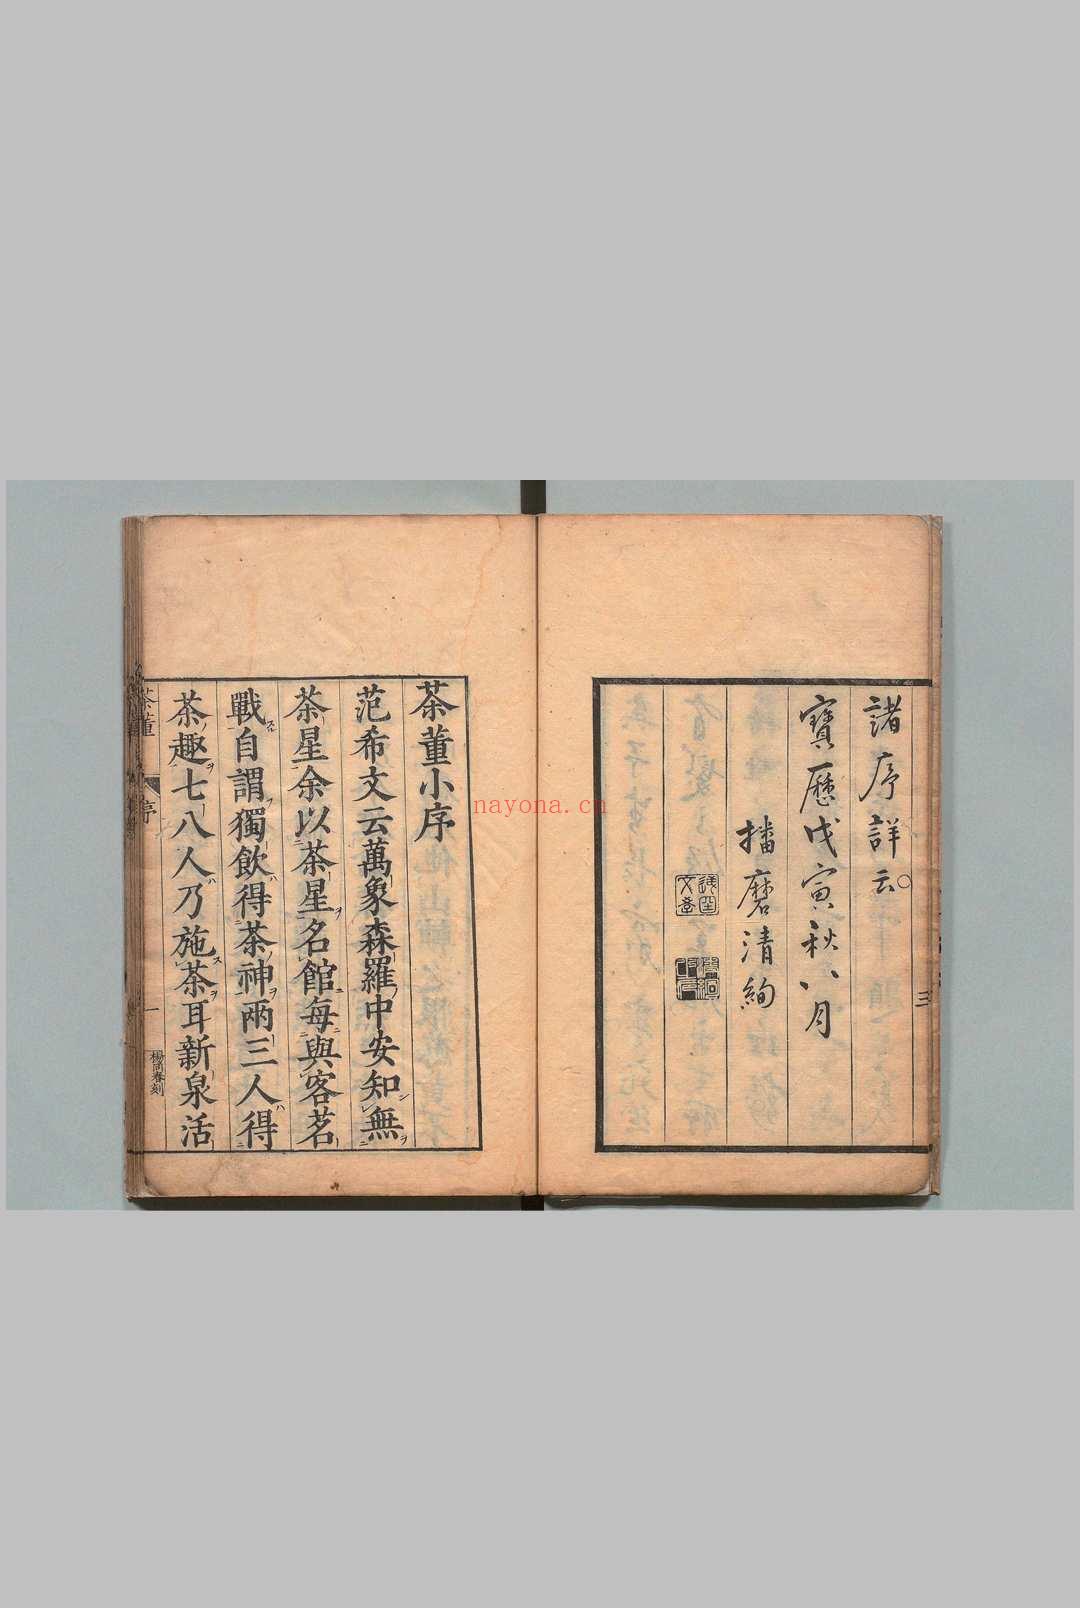 諸序詳云
寶歷戊寅秋八月
播磨清絢
三
茶董小序
范希文云萬象森羅中安知無
茶星余以茶星名館每與客茗
戰自謂獨飲得茶神兩三人得
茶趣七八人乃施茶耳新泉活
茶董 序 一 楊尚春刻
nayona.cn